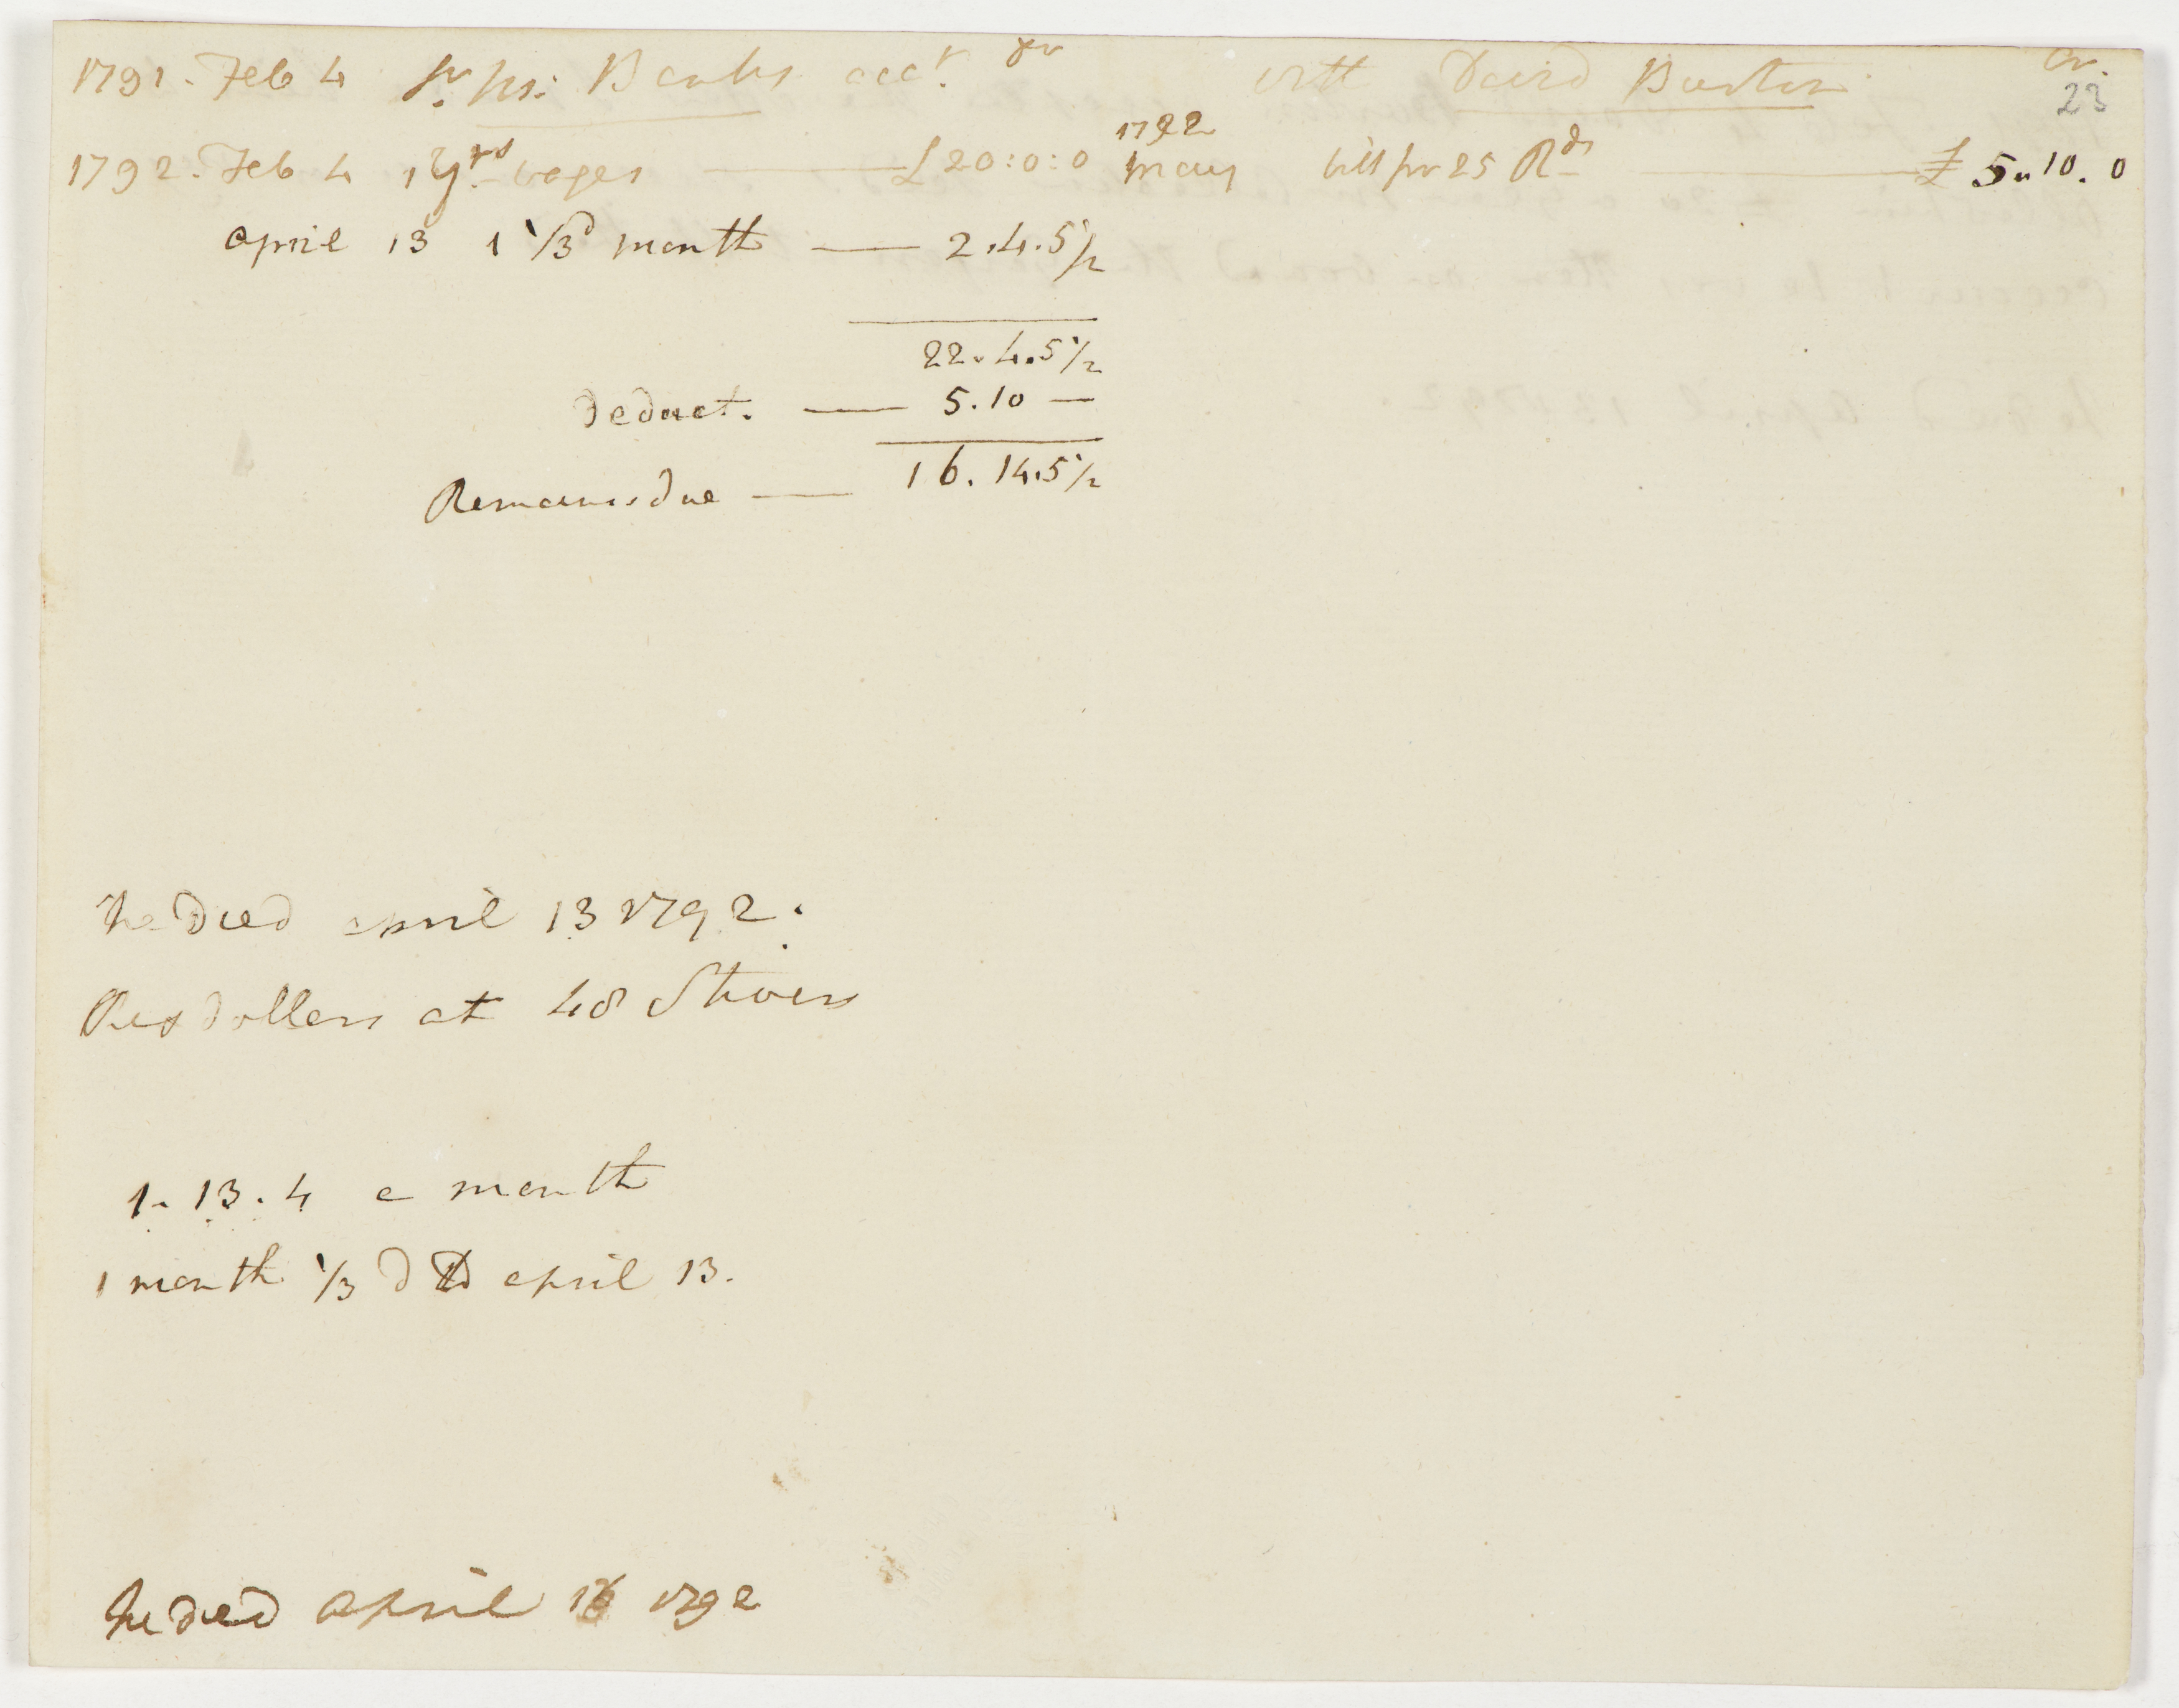 1791. Feb 4 Sr. Jos: Banks acct. Dr with David Burton Cr.
23
1792. Feb 4 1 yrs wages £20:0:0 1792 May bill for 25 Rds £ 5. 10. 0
April 13 1 1/3d month 2.4.5 1/2
22.4.5 1/2
deduct. 5.10 —
Remains due 16.14.5 1/2
he died april 13 1792.
Rex dollars at 48 Stivers
1. 13. 4 a month
1 month 1/3 d april 13.
he died April 1792